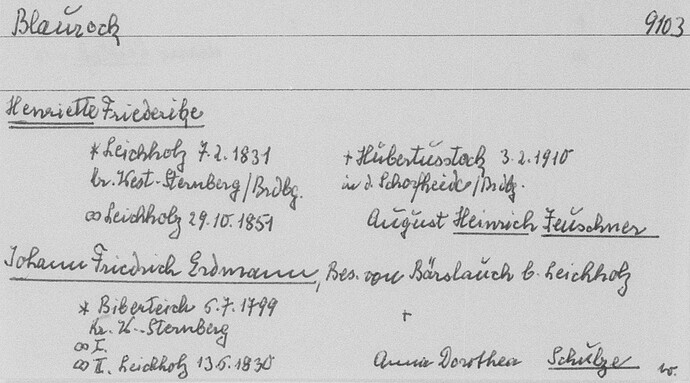 Blaurock 9103
Henriette Friederike
* Leichholz 7.2.1831 + Hubertusstock 3.2.1910
Kr. West-Sternberg/Brdbg. in d. Schorfheide/Brdg.
∞ Leichholz 29.10.1851 August Heinrich Zeuschner
Johann Friedrich Erdmann, Bes. von Bärslauch b. Leichholz
* Biberteich 5.7.1799 +
Kr. W.-Sternberg
∞ I.
∞ II. Leichholz 13.5.1830 Anna Dorothea Schulze